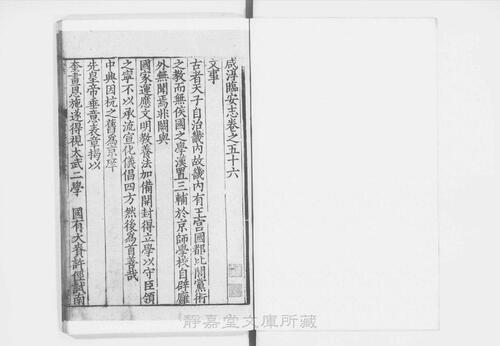 咸淳臨安志卷之五十六
文事
古者天子自治畿內故畿內有王宮國都比閭黨術
之教而無侯國之學漢置三輔於京師學校自辟廱
外無聞焉非闕與
國家運應文明教養法加備開封得立學以守臣領
之寧不以承流宣化儀倡四方然後為首善哉
中興因杭之舊為京庠
先皇帝垂意表章揚以
奎畫恩施遂得視大武二學 國有大賚許徑試南
靜嘉堂文庫所藏